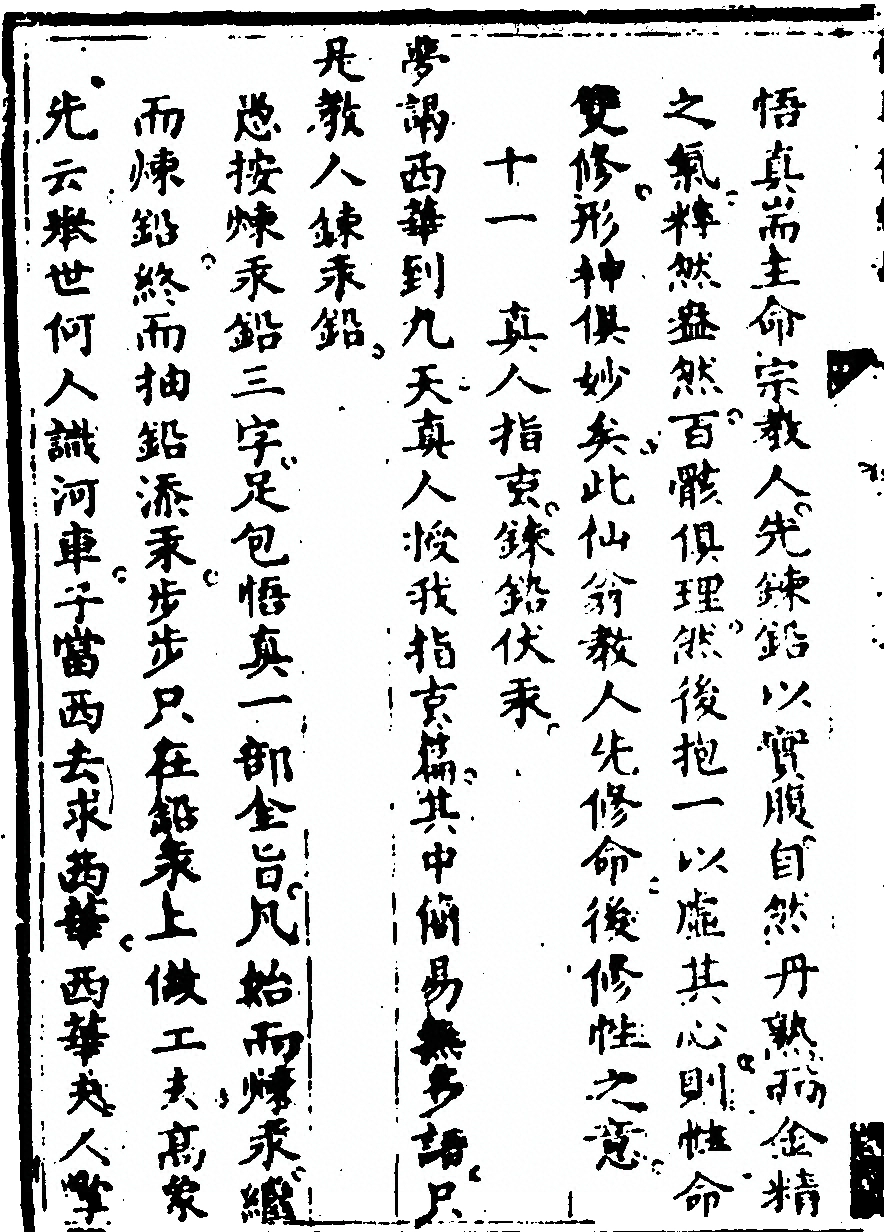 悟真耑主命宗教人先鍊鉛以實腹自然丹熟而金精
之氣粹然盎然百骸俱理然後抱一以虛其心則性命
雙修形神俱妙矣此仙翁教人先修命後修性之意
十一　真人指玄鍊鉛伏汞
夢謁西華到九天真人授我指玄篇其中簡易無多語只
是教人鍊汞鉛
愚按煉汞鉛三字足包悟真一部全旨凡始而煉汞繼
而煉鉛終而抽鉛添汞步步只在鉛汞上做工夫高象
先云舉世何人識河車子當西去求西華西華夫人掌